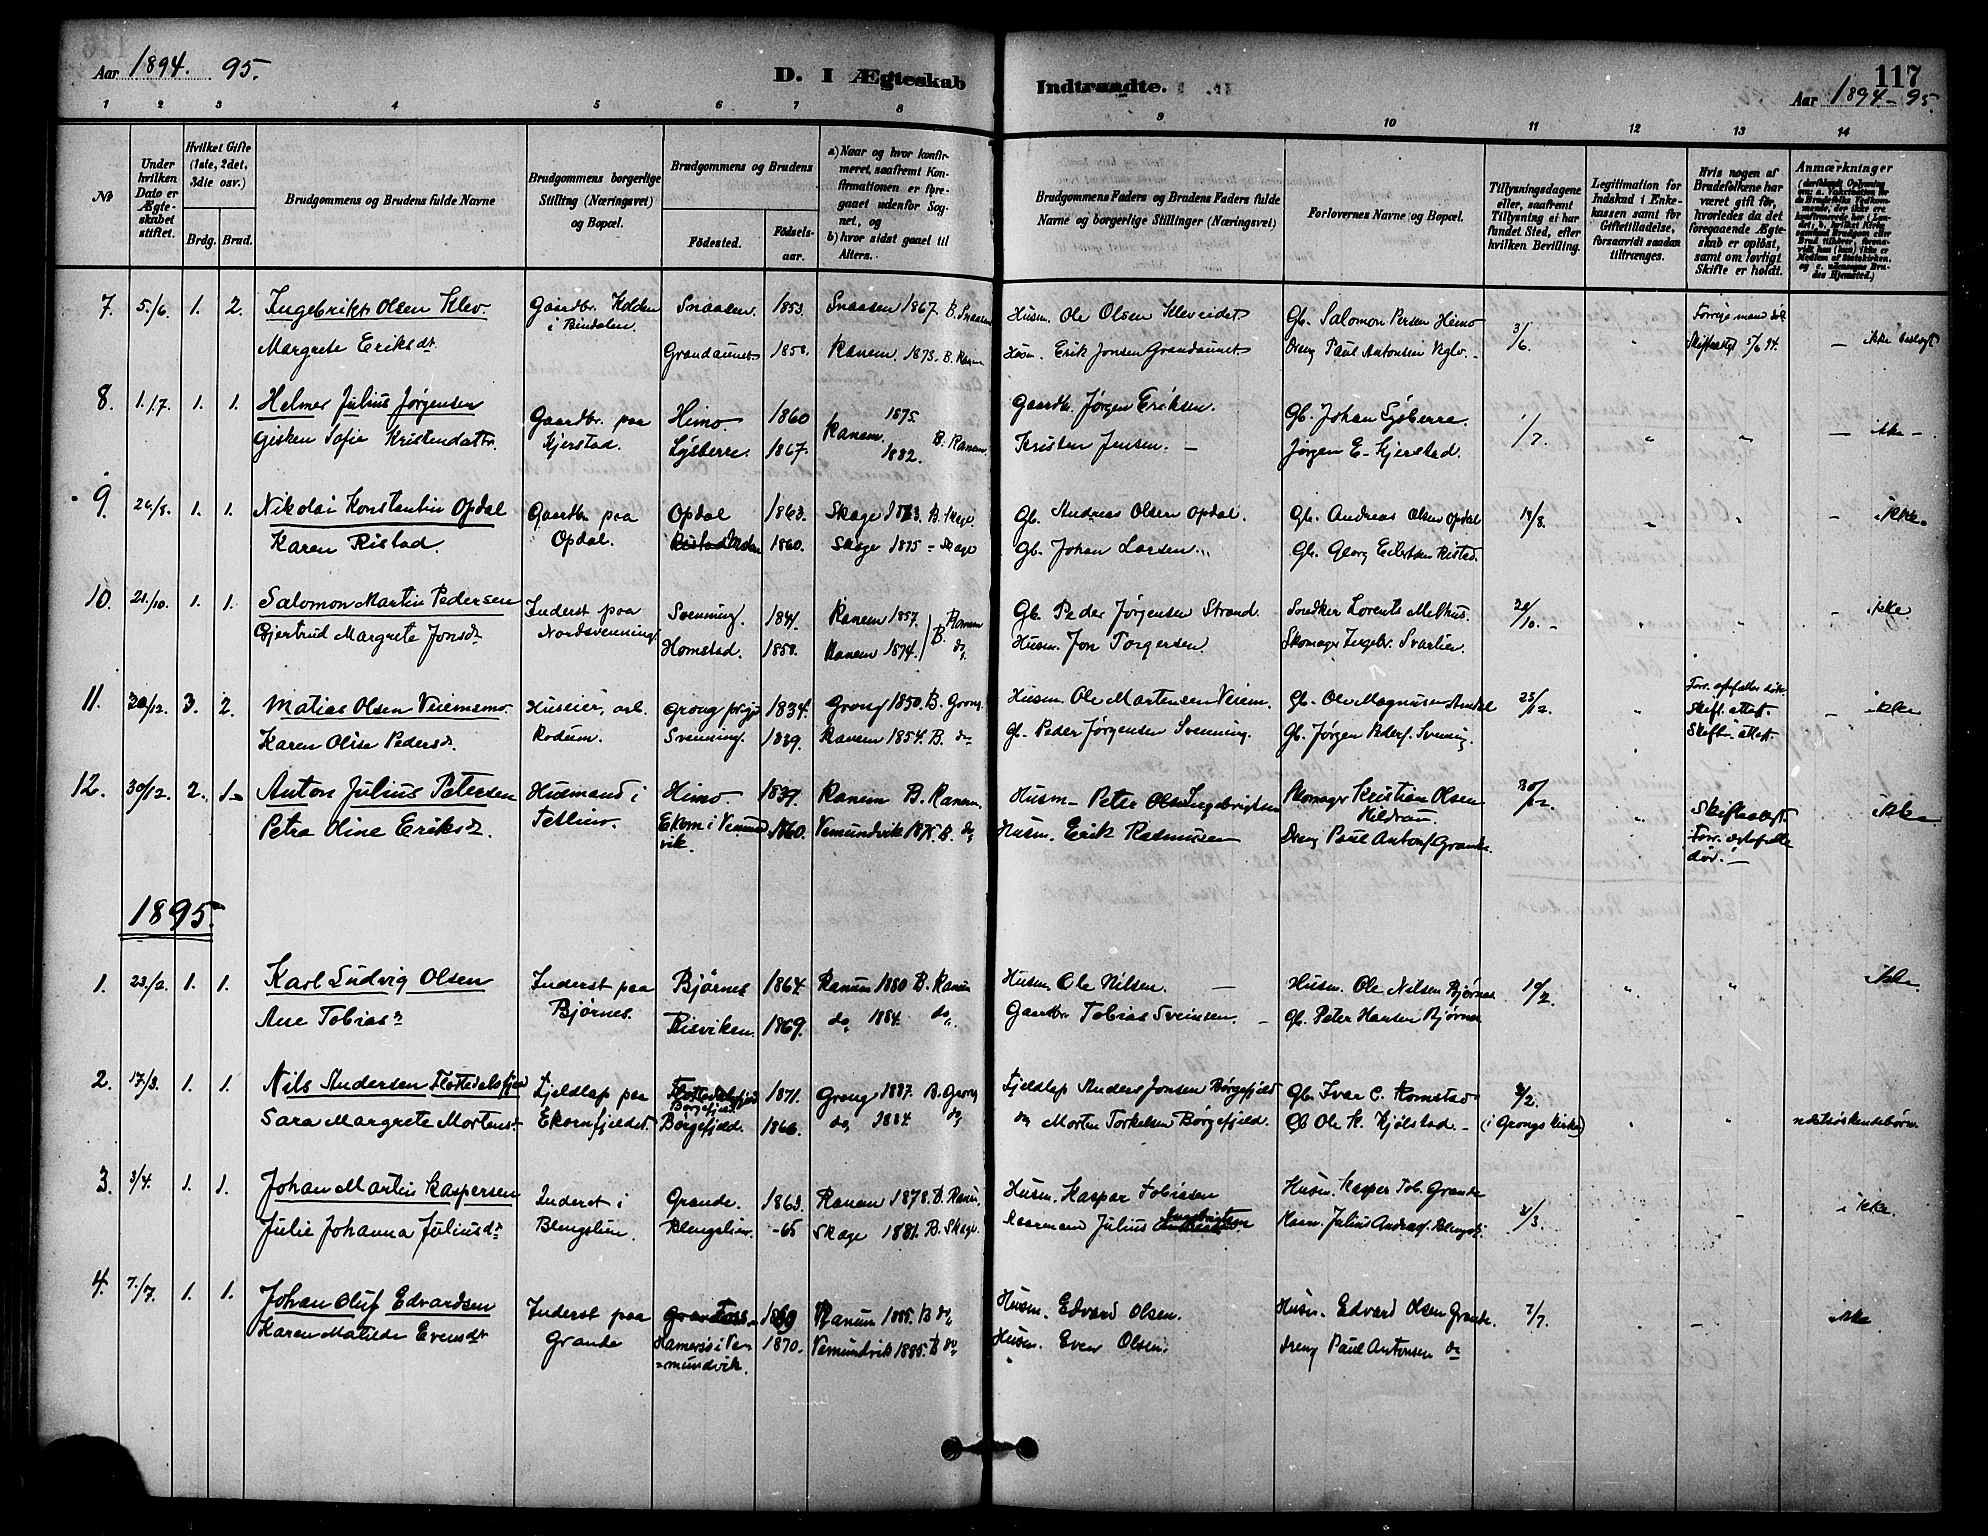 Aar 1894. 95.
D. I Ægteskab
Indtraadte.
117
Aar 1894-95.
1 2 3 4 5 6 7 8 9 10 11 12 13 14
No
Under hvilken Dato er Ægteskabet stiftet.
Hvilket Gifte (1ste, 2det, 3die osv.)
Brdg. Brud.
Brudgommens og Brudens fulde Navne
Brudgommens borgerlige Stilling (Næringsvei) og Bopæl.
Brudgommens og Brudens
Fødested.
Fødselsaar.
a) Naar og hvor konfirmeret, saafremt Konfirmationen er foregaaet udenfor Sognet, og
b) hvor sidst gaaet til Alters.
Brudgommens Faders og Brudens Faders fulde Navne og borgerlige Stillinger (Næringsvei)
Forlovernes Navne og Bopæl.
Tillysningsdagene eller, saafremt Tillysning ei har fundet Sted, efter hvilken Bevilling.
Legitimation for Indskud i Enkekassen samt for Giftetilladelse, forsaavidt saadan tiltrænges.
Hvis nogen af Brudefolkene har været gift før, hvorledes da det foregaaende Ægteskab er opløst, samt om lovligt Skifte er holdt.
Anmærkninger
7. 5./6. 1. 2. Ingebrikt Olsen Klev. Gaardbr. Kolden i Bindalen Snaasen. 1853. Snaasen 1867. B. Snaasen Husm. Ole Olsen Kleveidet Gb. Salomon Persen Himo 3/6.
Margrete Eriksdt. Grandaunet 1850. Ranem. 1873. B. Ranem Husm. Erik Jonsen Grandaunet Dreng Paul Antonsen Skifteattest 5/6 94. — ikke beslegt
8. 1./7. 1. 1. Helmer Julius Jørgensen Gaardbr. paa Kjerstad. Himo 1860 Ranem. 1875. Gaardbr. Jørgen Eriksen. Gb. Johan Lysberre. 1/7. — ikke
Gisken Sofie Kristendattr. Lysberre. 1867. 1882. B. Ranem. Kristen Jensen. — Jørgen E. Kjerstad.
9. 26./8. 1. 1. Nikolai Konstantin Opdal Gaardbr. paa Opdal. Opdal 1863. Skage B. Skage. Gb. Andreas Olsen Opdal. Gb. Andreas Olsen Opdal 19/8. — ikke
Karen Ristad. 1860. Skage 1875 - Skage Gb. Johan Larsen Gb. Georg Eilertsen Ristad.
10. 21./10. 1. 1. Salomon Martin Pedersen Inderst paa Nordsvenning. Svenning. 1841. Ranem 1857. B. Ranem Gb. Peder Jørgensen Strand. Snedker Lorents Melhus. 20/10. — ikke
Gjertrud Margrete Jonsdr. Homstad. 1850. Ranem 1874. do. Husm. Jon Torgersen. Skomager Ingebr. Svarlien.
11. 30/12. 3. 2. Matias Olsen Veiemsmo. Huseier, arb. Rodum. Grong prgj. 1834. Grong 1850. B. Grong. Husm. Ole Martensen Veiem. Gb. Ole Magnusen 23/12. Skift. attest. — ikke
Karen Oline Pedersdr. Svenning. 1839. Ranem 1854. B. do Gb. Peder Jørgensen Svenning. Gb. Jørgen Peders. Svening. Skift. attest.
12. 30/12. 2. 1. Anton Julius Petersen Husmand i Fetlien. Himo. 1837. Ranem B. Ranem. Husm. Peter Olsen Ingebrigtsen Skomager Kristian Olsen Hildrem 30/12 Skifteattest. ikke
Petra Oline Eriksdr. Ekern i Vemundvik. 1860. Vemundvik 1875. B. do Husm. Erik Rasmussen Dreng Paul Antons. Grande.
1895.
1. 23./2. 1. 1. Karl Ludvig Olsen Inderst paa Bjørnes. Bjørnes 1864. Ranum 1880 B. Ranum Husm. Ole Nilsen. — Husm. Ole Nilsen Bjørnes 10/2. ikke.
Ane Tobiasdr. Risviken. 1869. do. 1884. do. Gaardbr. Tobias Sveinsen. — Gb. Peter Hansen Bjørnes
2. 17./3. 1. 1. Nils Andersen Fjeldlap paa Ekornfjeldet. Børgefjeld 1871. Grong 1887. B. Grong Fjeldlap Anders Jonsen Børgefjeld Gb. Ivar C. Romstad 3/2.
Sara Margrete Mortens. Børgefjeld. 1866. do. 1884. do do Morten Torkelsen Børgefjeld. Gb. Ole K. Kjølstad. (i Grongs kirke) nestsøskendebørn.
3. 3/4. 1. 1. Johan Martin Kaspersen Inderst i Blengslien. Grande. 1863. Ranem 1878. B. Ranem. Husm. Kaspar Tobiasen Husm. Kasper Tob. Grande 3/3. ikke.
Julie Johanna Juliusdr. Blengslien. -65 Skage 1881. B. Skage. Julius Ingebrigtsen Julius
4. 7./7. 1. 1. Johan Oluf Edvardsen Inderst paa Grande 1869 Ranum 1885. B do Husm. Edvard Olsen. Husm. Edvard Olsen Grande. 7/7. — ikke.
Karen Matilde Evensdt. Hamersø i Vemundvik. 1870. Vemundvik 1885. B do Husm. Even Olsen. Dreng Paul Antonsen do